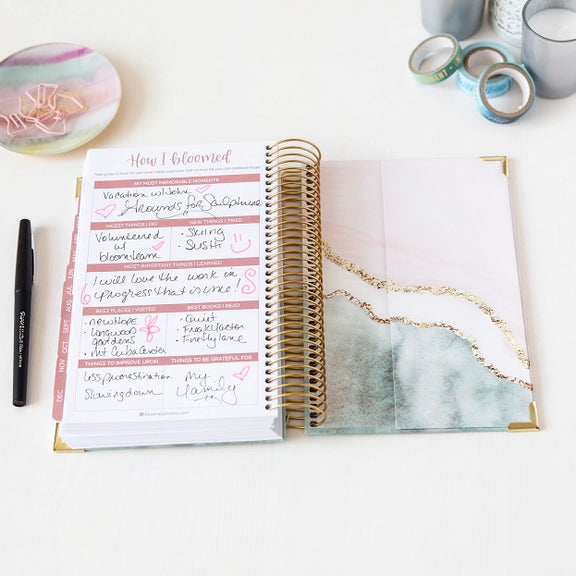 How I bloomed
Take pride in how far you have come, and have faith in how far you can go.
MY MOST MEMORABLE MOMENTS
Vacation w/ John
Grounds for Sculpture
NICEST THINGS I DID
Volunteered
w/
bloom team
NEW THINGS I TRIED
• Skiing
• Sushi
MOST IMPORTANT THINGS I LEARNED
I will love the work in
progress that is me!
BEST PLACES I VISITED
• new Hope
• Longwood
gardens
• Mt Cuba Center
BEST BOOKS I READ
• Quiet
• Freaky Factor
• Firefly lane
THINGS TO IMPROVE UPON
Less procrastination
Slowing down
THINGS TO BE GRATEFUL FOR
My
family
bloomplanners.com
AUG
SEPT
OCT
NOV
DEC